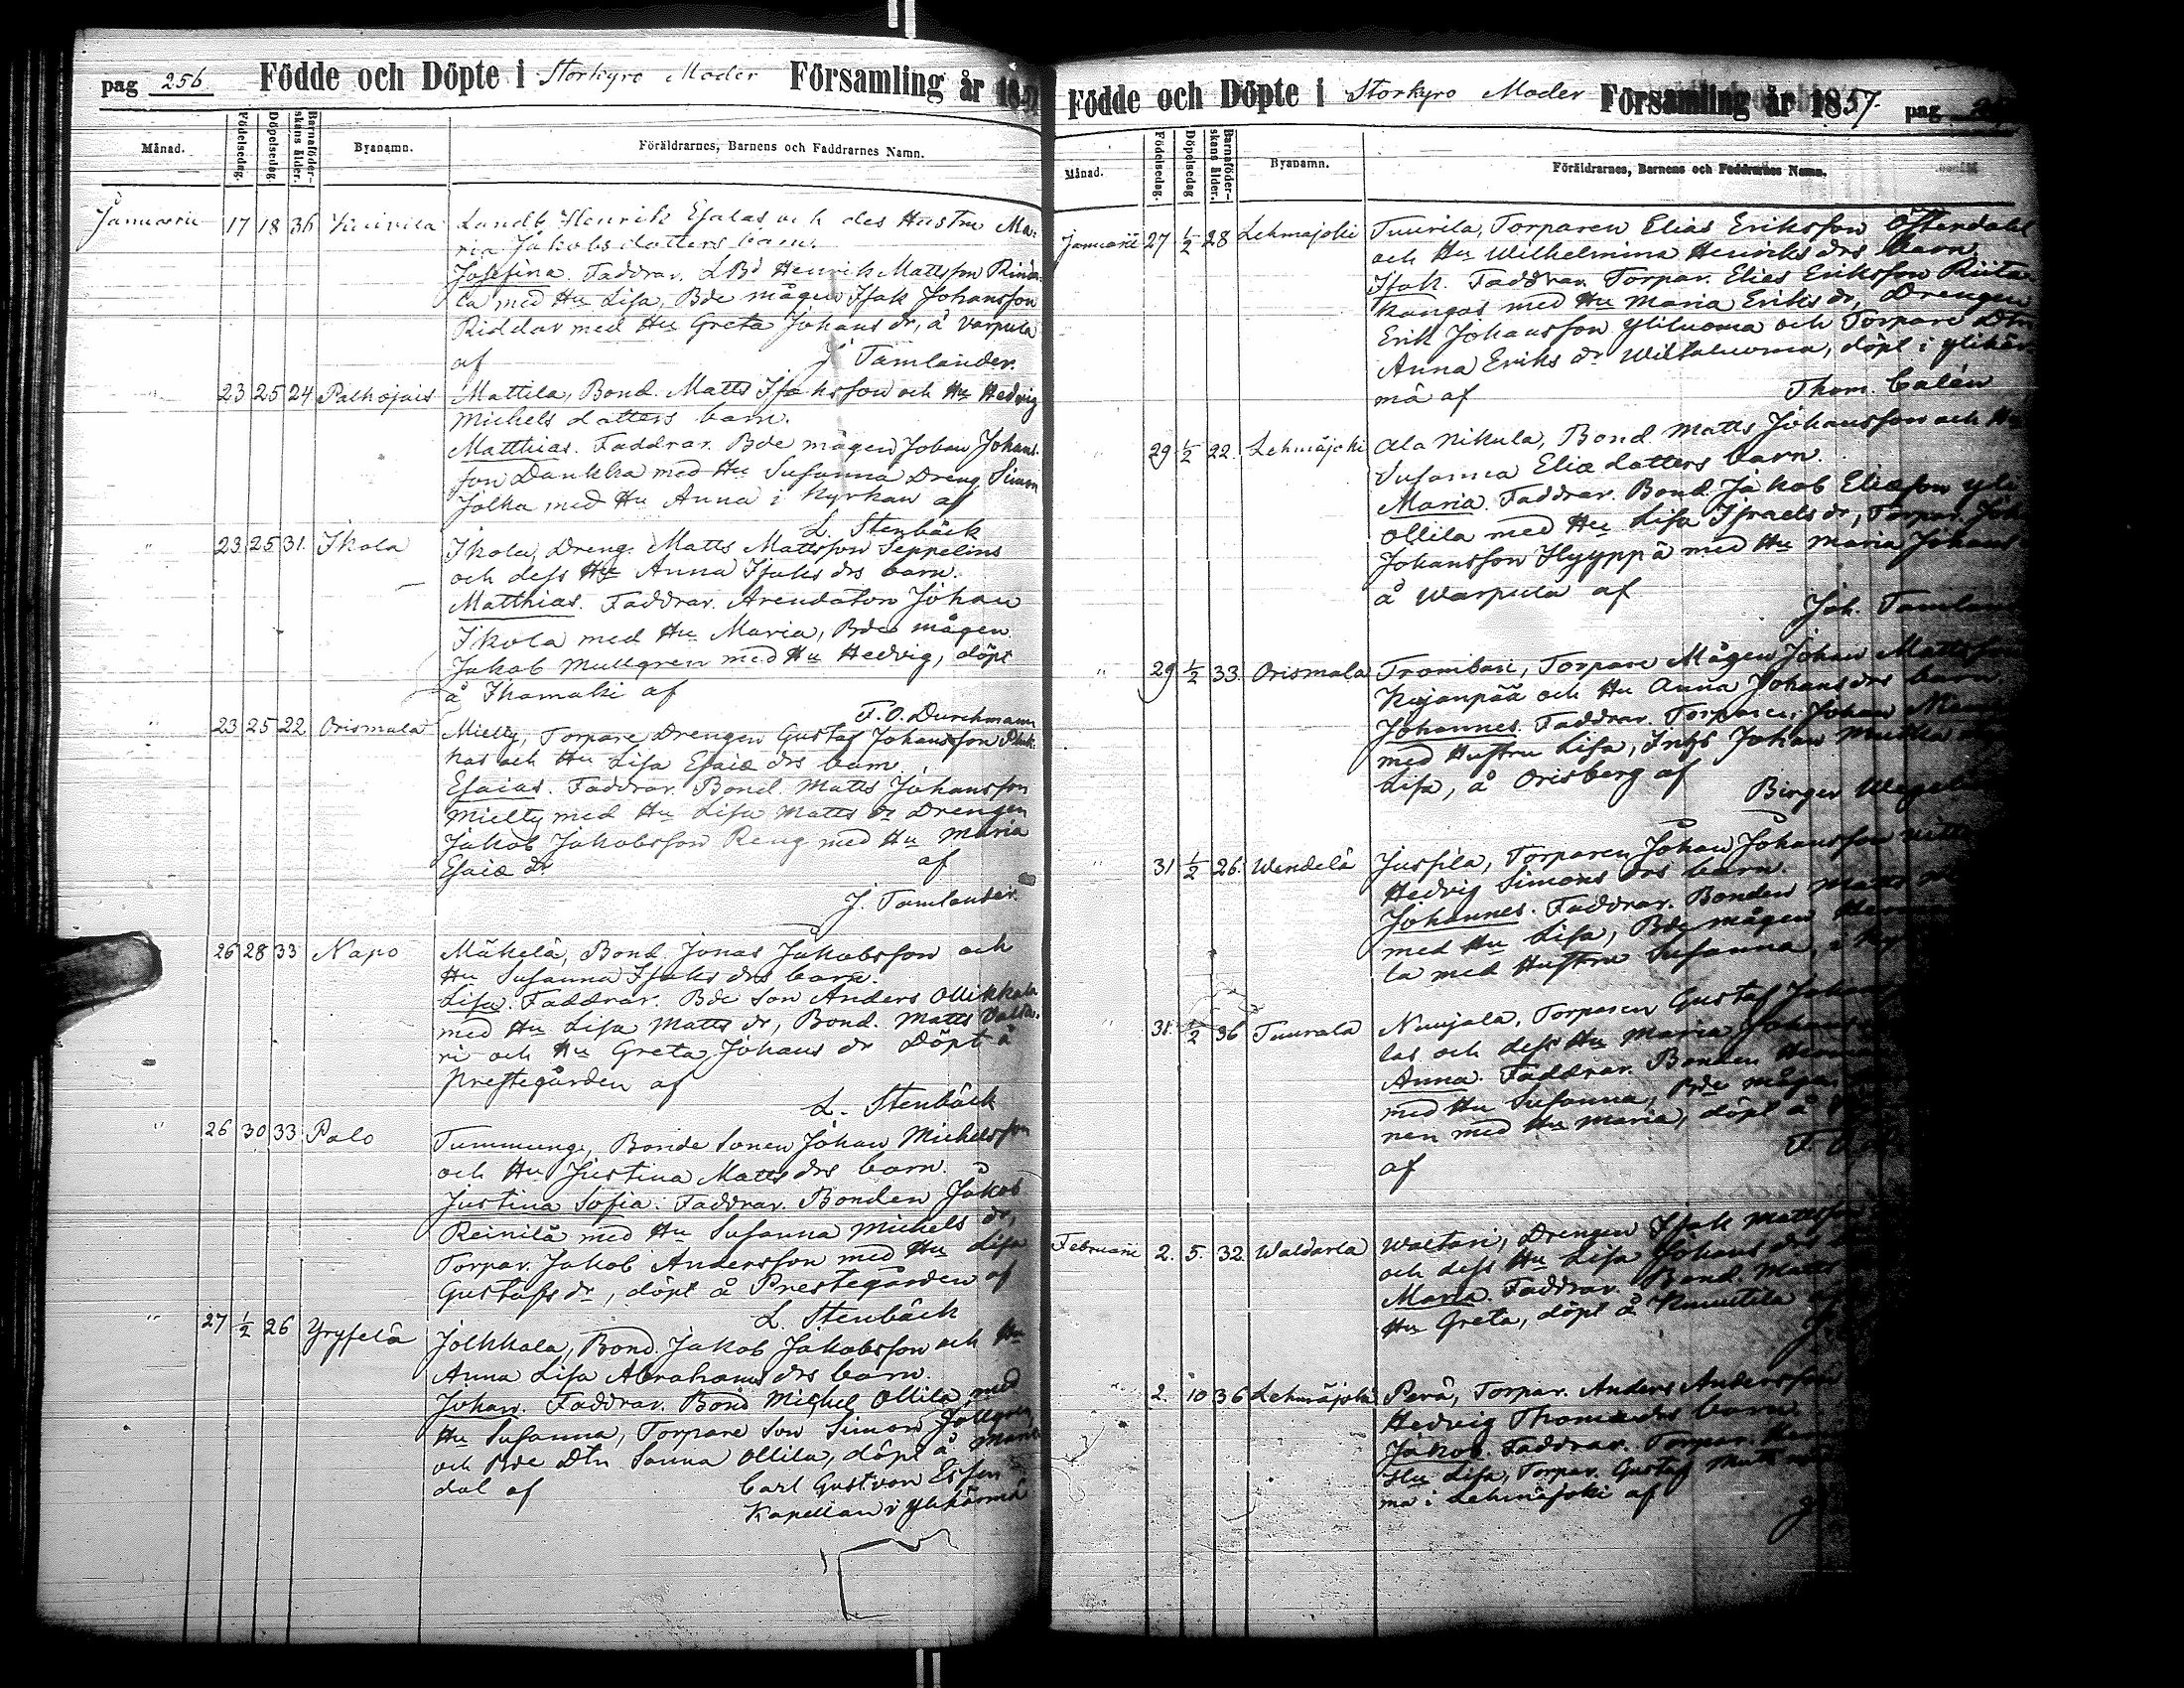 pag 256 Födde och Döpte i Storkyro Moder Församling år 1857
Månad. Födelsedag. Döpelsedag. Barnaföderskans ålder. Byanamn. Föräldrarnes, Barnens och Faddrarnes Namn.
Januarii 17 18 36 Kuivila Landb. Henrik Esaias och des Hustru Ma:
ria Jakobsdotters barn.
Josefina. Faddrar. LBd Henrik Mattsson Rinda-
la med Hu Lisa, Bde mågen Isak Johansson
Riddar med Hu Greta Johans dr, å Varpula
af J Tamlander.
" 23 25 24 Palhojais Mattila, Bond. Matts Isaksson och Hu Hedvig
Michels dotters barn.
Matthias. Faddrar. Bde mågen Johan Johans-
son Dankka med Hu Susanna Dreng Simon
Jolka med Hu Anna i Kyrkan af
L. Stenbäck
" 23 25 31. Ikola Ikola, Dreng. Matts Mattsson Seppelins
och dess Hu Anna Isaks drs barn.
Matthias. Faddrar. Arendatorn Johan
Ikola med Hu Maria, Bde mågen
Jakob Mullgren med Hu Hedvig, döpt
å Ikamaki af
F. O. Durchmann
" 23 25 22 Orismala Mielty, Torpare Drengen Gustaf Johansson
kas och Hu Lisa Esaiæ drs barn
Esaias. Faddrar. Bond. Matts Johansson
Mielty med Hu Lisa Matts dr Drengen
Jakob Jakobsson Reng med Hu Maria
Esaiæ dr af
J. Tamlander.
26 28 33 Napo Mäkelä, Bond. Jonas Jakobsson och
Hu Susanna Isaks drs barn.
Lisa. Faddrar. Bde Son Anders Ollikkala
med Hu Lisa Matts dr, Bond. Matts Valta-
ri och Hu Greta Johans dr Döpt å
Prestegården af
L. Stenbäck
" 26 30 33 Palo Tummunge, Bonde Sonen Johan Michelsson
och Hu Justina Matts drs barn.
Justina Sofia. Faddrar. Bonden Jakob
Reinilä med Hu Susanna Michels dr,
Torpar. Jakob Andersson med Hu Lisa
Gustafs dr, döpt å Prestegården af
L. Stenbäck
" 27 1/2 26 Yryselä Jolkkala, Bond. Jakob Jakobsson och Hu
Anna Lisa Abrahams drs barn.
Johan. Faddrar. Bond Michel Ollila med
Hu Susanna, Torpare Son Simon Jollgren
och Bde Dtr Sanna Ollila, döpt å Marie
dal af Carl Gust von Essen
Kapellan i Ylihärmä
Födde och Döpte i Storkyro Moder Församling år 1857. pag
Månad. Födelsedag. Döpelsedag Barnaföderskans ålder. Byanamn. Föräldrarnes, Barnens och Faddrarnes Namn.
Januarii 27 1/2 28 Lehmäjoki Tuurila, Torparen Elias Eriksson Österdahl
och Hu Wilhelmina Henriks drs barn
Isak. Faddrar. Torpar. Elias Eriksson Riita
kangas med Hu Maria Eriks dr, Drengen
Erik Johansson Yliluoma och Torpare Dtr
Anna Eriks dr Wiitaluoma, döpt i Ylihär
mä af Thom. Calén
29 1/2 22. Lehmäjoki Ala Nikula, Bond. Matts Johansson och Hu
Susanna Eliæ dotters barn.
Maria. Faddrar. Bond. Jakob Eliasson Yli
Ollila med Hu Lisa Israels dr, Torpar. Joh
Johansson Hyyppä med Hu Maria Johans
å Warpula af
Joh. Tamland
" 29 1/2 33. Orismala Trombari, Torpare Mågen Johan Mattsson
Kojanpää och Hu Anna Johans drs barn.
Johannes. Faddrar. Torparen Johan
med Hustru Lisa, Inhs Johan
Lisa, å Orisberg af
Birger Wegeli
" 31 1/2 26. Wendelä Jussila, Torparen Johan Johansson
Hedvig Simons drs barn.
Johannes. Faddrar. Bonden Matts
med Hu Lisa, Bde mågen
la med Hustru Susanna,
" 31. 1/2 36 Tuurala Nuujala, Torparen Gustaf Johans
las och dess Hu Maria Johans
Anna. Faddrar. Bonden
med Hu Susanna, Bde mågen
nen med Hu Maria, döpt å
af
Februarii 2. 5. 32. Waldarla Waltari, Drengen Isak Mattsson
och dess Hu Lisa Johans drs
Maria Faddrar. Bond. Matts
Hu Greta, döpt å Knuutila af
" 2. 10 36 Lehmäjoki Perä, Torpar. Anders Andersson
Hedvig Thomæ drs barn.
Jakob. Faddrar. Torpar.
Hu Lisa, Torpar. Gustaf
ma i Lehmäjoki af